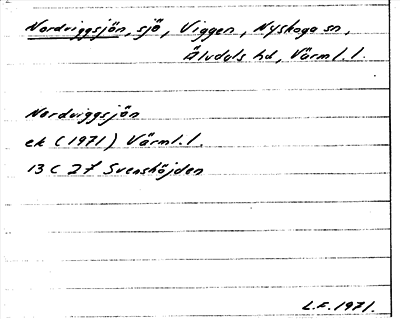 Nordviggsjön, sjö, Viggen, Nyskoga sn,
Älvdals hd, Värml. l.
Nordviggsjön
ek (1971) Värml. l.
13 C 2f Svenshöjden
L.F. 1971.